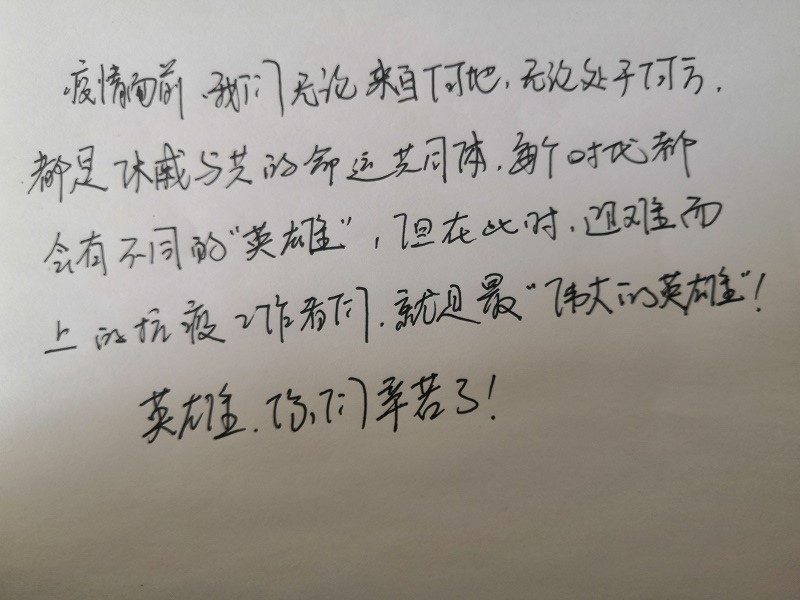 疫情面前，我们无论来自何地，无论处于何方，
都是休戚与共的命运共同体，每个时代都
会有不同的“英雄”，但在此时，迎难而
上的抗疫工作者们，就是最“伟大的英雄”！
英雄，你们辛苦了！